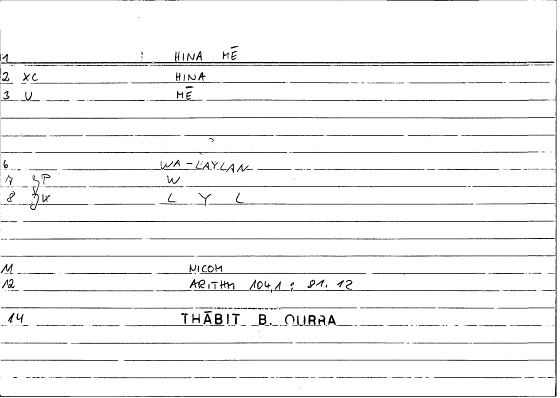 1 : HINA MĒ
2 XC HINA
3 U MĒ
6 WA-LAYLAN
7 P W
8 K L Y L
11 NICOM
12 ARITHM 104,1 : 81.12
14 THĀBIT B. QURRA